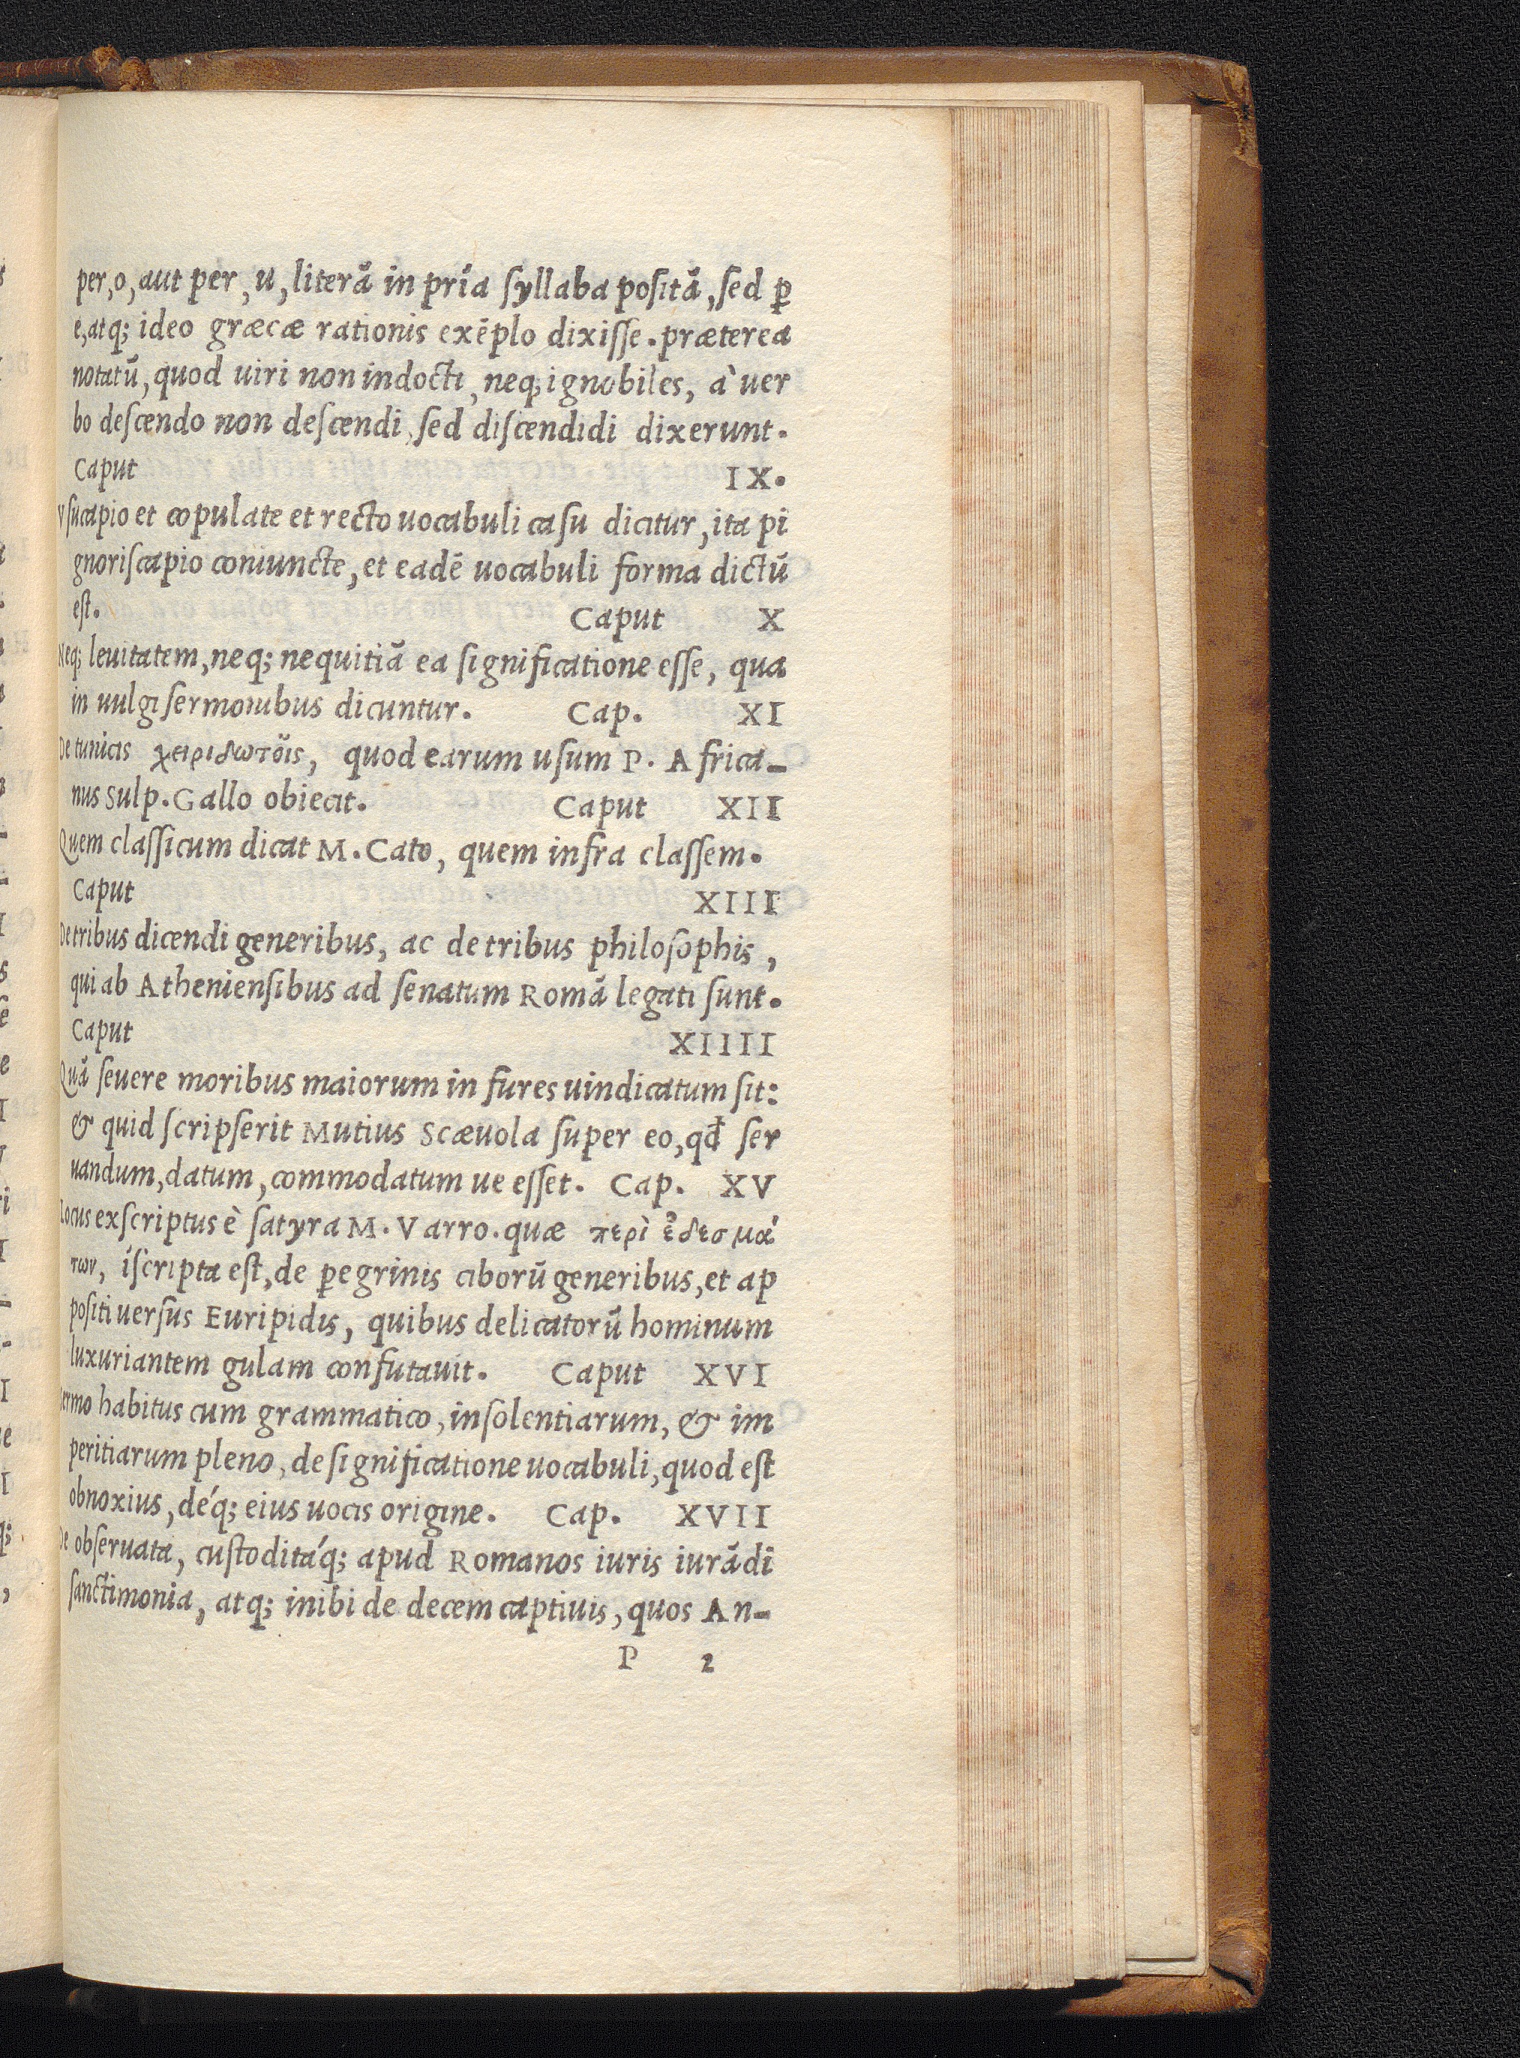 per, o, aut per, u, literã in pría syllaba positã, sed ꝑ
e, atq; ideo græcæ rationis exẽplo dixisse. præterea
notatũ, quod uiri non indocti, neq; ignobiles, à uer
bo descendo non descendi, sed discendidi dixerunt.
Caput IX.
Vsucapio et copulate et recto uocabuli casu dicitur, ita pi
gnoriscapio coniuncte, et eadẽ uocabuli forma dictũ
est. Caput X
Neq; leuitatem, neq; nequitiã ea significatione esse, qua
in uulgi sermonibus dicuntur. Cap. XI
De tunicis χειριδωτοῖς, quod earum usum P. Africa-
nus Sulp. Gallo obiecit. Caput XII
Quem classicum dicat M. Cato, quem infra classem.
Caput XIII
De tribus dicendi generibus, ac de tribus philosophis,
qui ab Atheniensibus ad senatum Romã legati sunt.
Caput XIIII
Quã seuere moribus maiorum in fures uindicatum sit:
& quid scripserit Mutius Scæuola super eo, qđ ser
uandum, datum, commodatum ue esset. Cap. XV
Locus exscriptus è satyra M. Varro. quæ περὶ ἐδεσμά
των, íscripta est, de ꝑegrinis ciborũ generibus, et ap
positi uersus Euripidis, quibus delicatorũ hominum
luxuriantem gulam confutauit. Caput XVI
Sermo habitus cum grammatico, insolentiarum, & im
peritiarum pleno, de significatione uocabuli, quod est
obnoxius, déq; eius uocis origine. Cap. XVII
De obseruata, custoditáq; apud Romanos iuris iurãdi
sanctimonia, atq; inibi de decem captiuis, quos An-
P 2